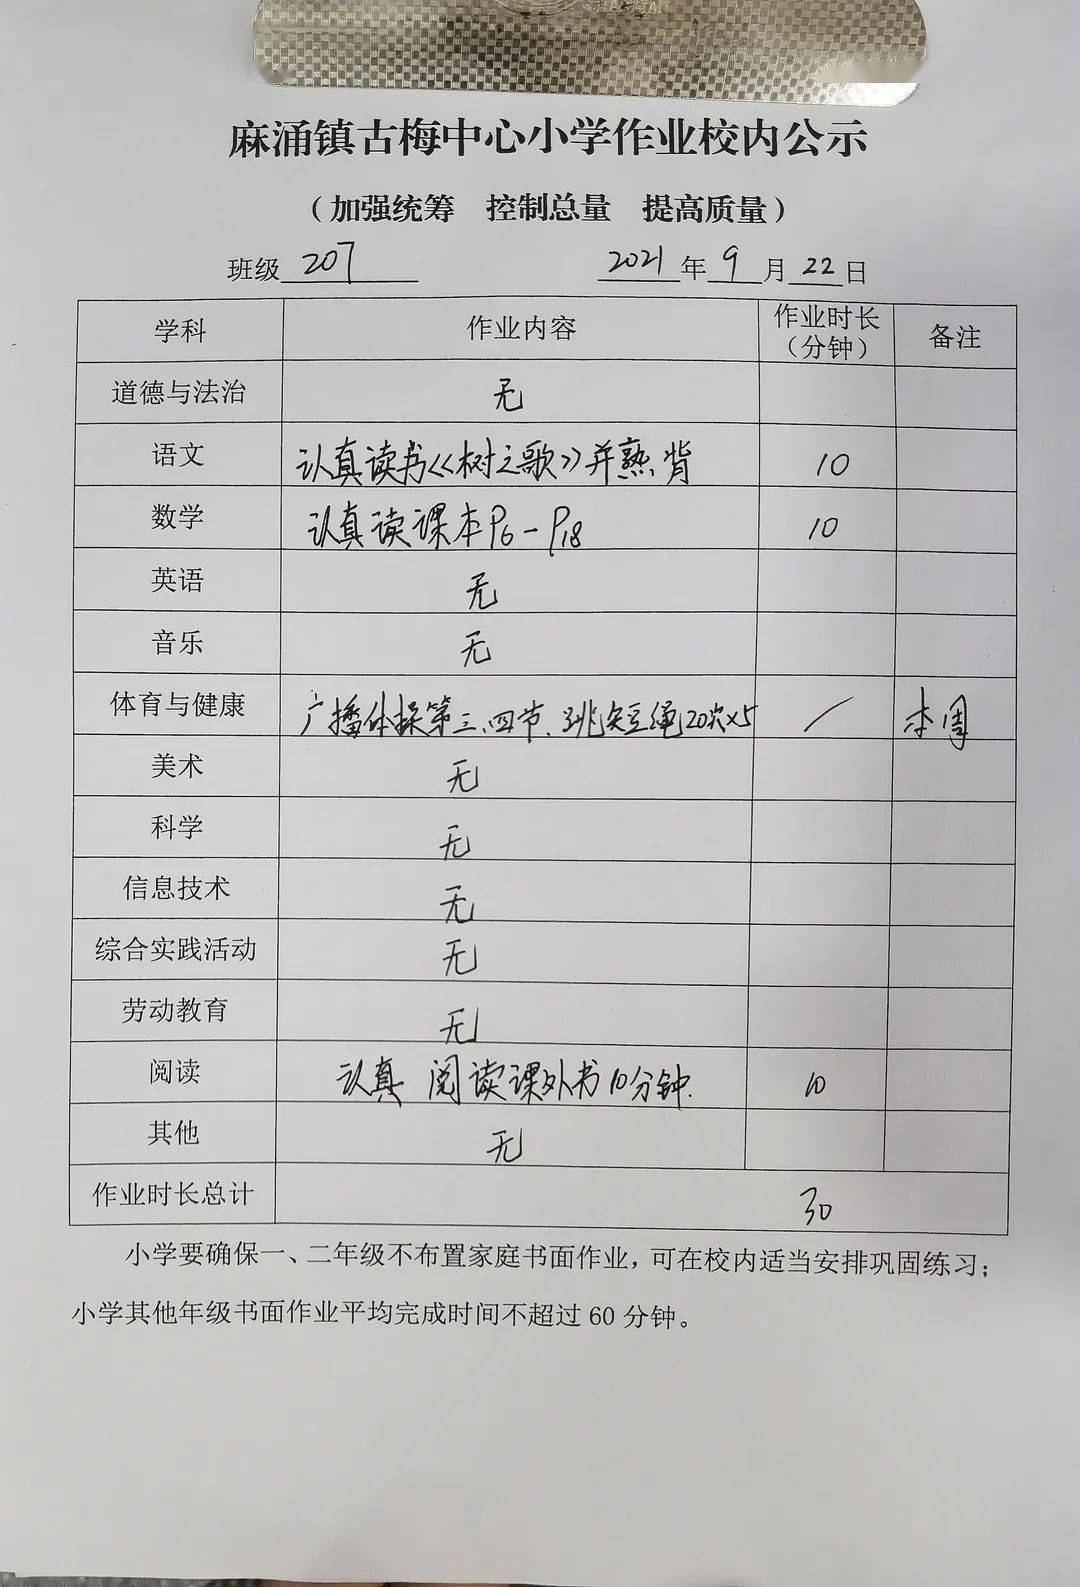 麻涌镇古梅中心小学作业校内公示
（加强统筹 控制总量 提高质量）
班级 207 2021 年 9 月 22 日
学科 作业内容 作业时长（分钟） 备注
道德与法治 无
语文 认真读书《树之歌》并熟背 10
数学 认真读课本P6-P18 10
英语 无
音乐 无
体育与健康 广播体操第三、四节、跳短绳20次×5 / 本周
美术 无
科学 无
信息技术 无
综合实践活动 无
劳动教育 无
阅读 认真 阅读课外书10分钟. 10
其他 无
作业时长总计 30
小学要确保一、二年级不布置家庭书面作业，可在校内适当安排巩固练习；
小学其他年级书面作业平均完成时间不超过 60 分钟。